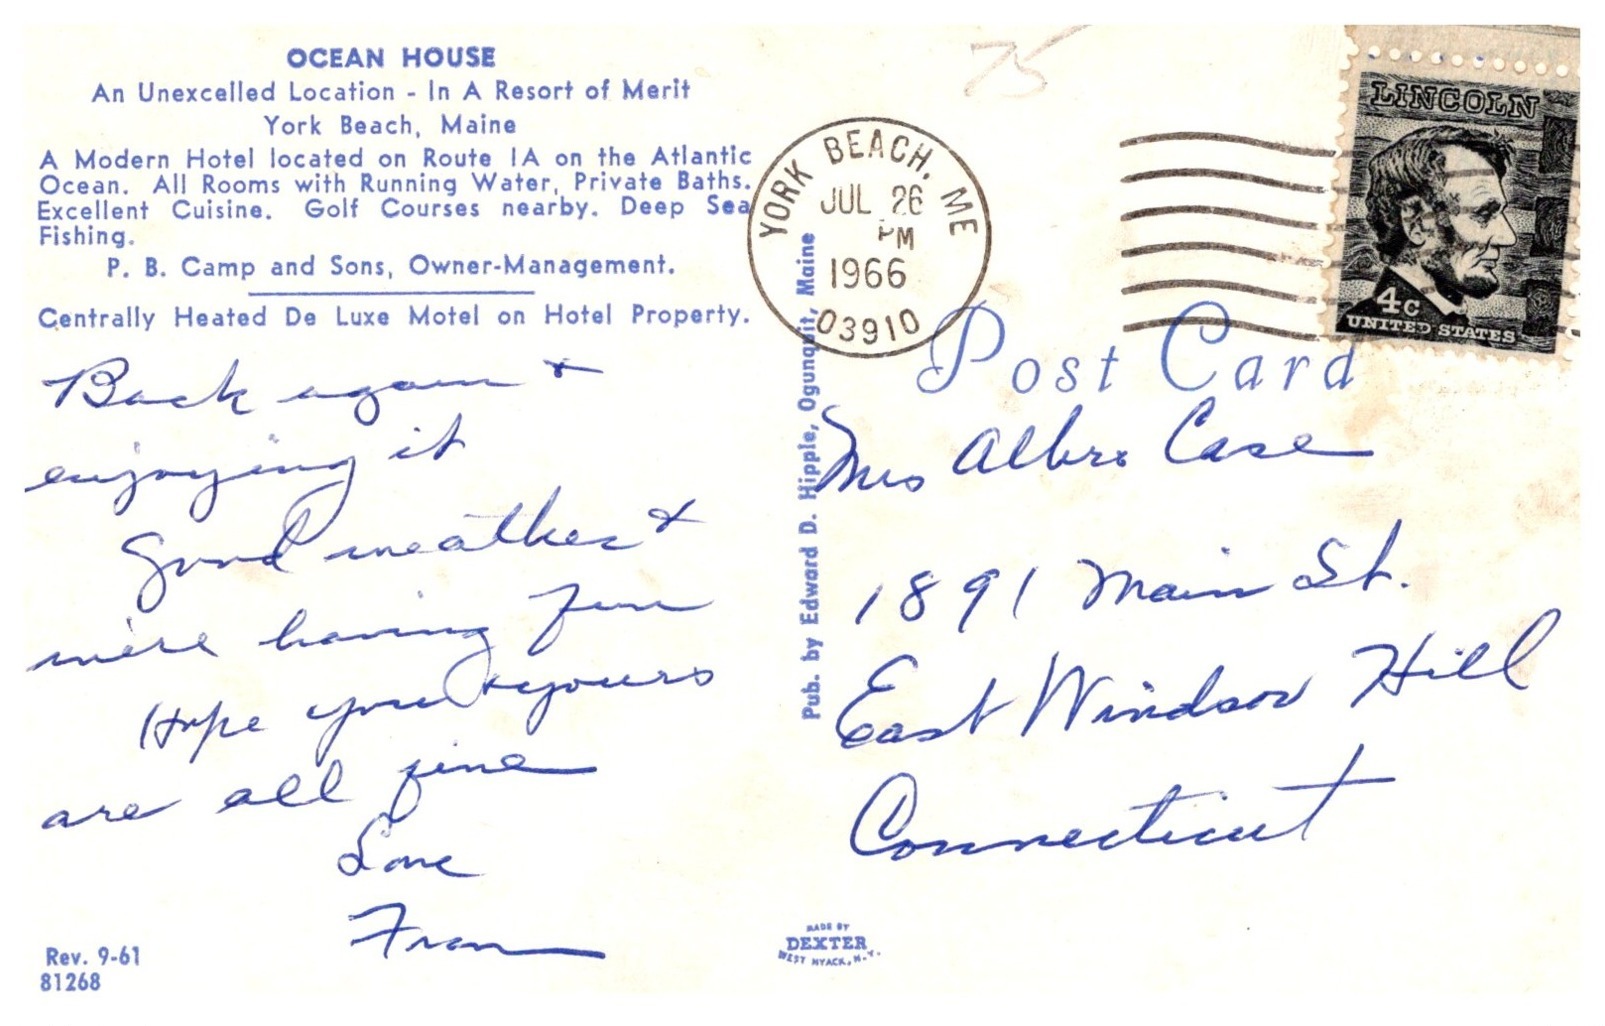 OCEAN HOUSE
An Unexcelled Location - In A Resort of Merit
York Beach, Maine
A Modern Hotel located on Route 1A on the Atlantic
Ocean. All Rooms with Running Water, Private Baths.
Excellent Cuisine. Golf Courses nearby. Deep Sea
Fishing.
P. B. Camp and Sons, Owner-Management.
Centrally Heated De Luxe Motel on Hotel Property.
Back again +
enjoying it
Good weather +
we're having fun
Hope you + yours
are all fine
Love
Fran
Rev. 9-61
81268
Pub. by Edward D. Hipple, Ogunquit, Maine
MADE BY
DEXTER
WEST NYACK, N.Y.
75
YORK BEACH, ME
JUL 26
PM
1966
03910
LINCOLN
4c
UNITED STATES
Post Card
Mrs Albro Case
1891 Main St.
East Windsor Hill
Connecticut